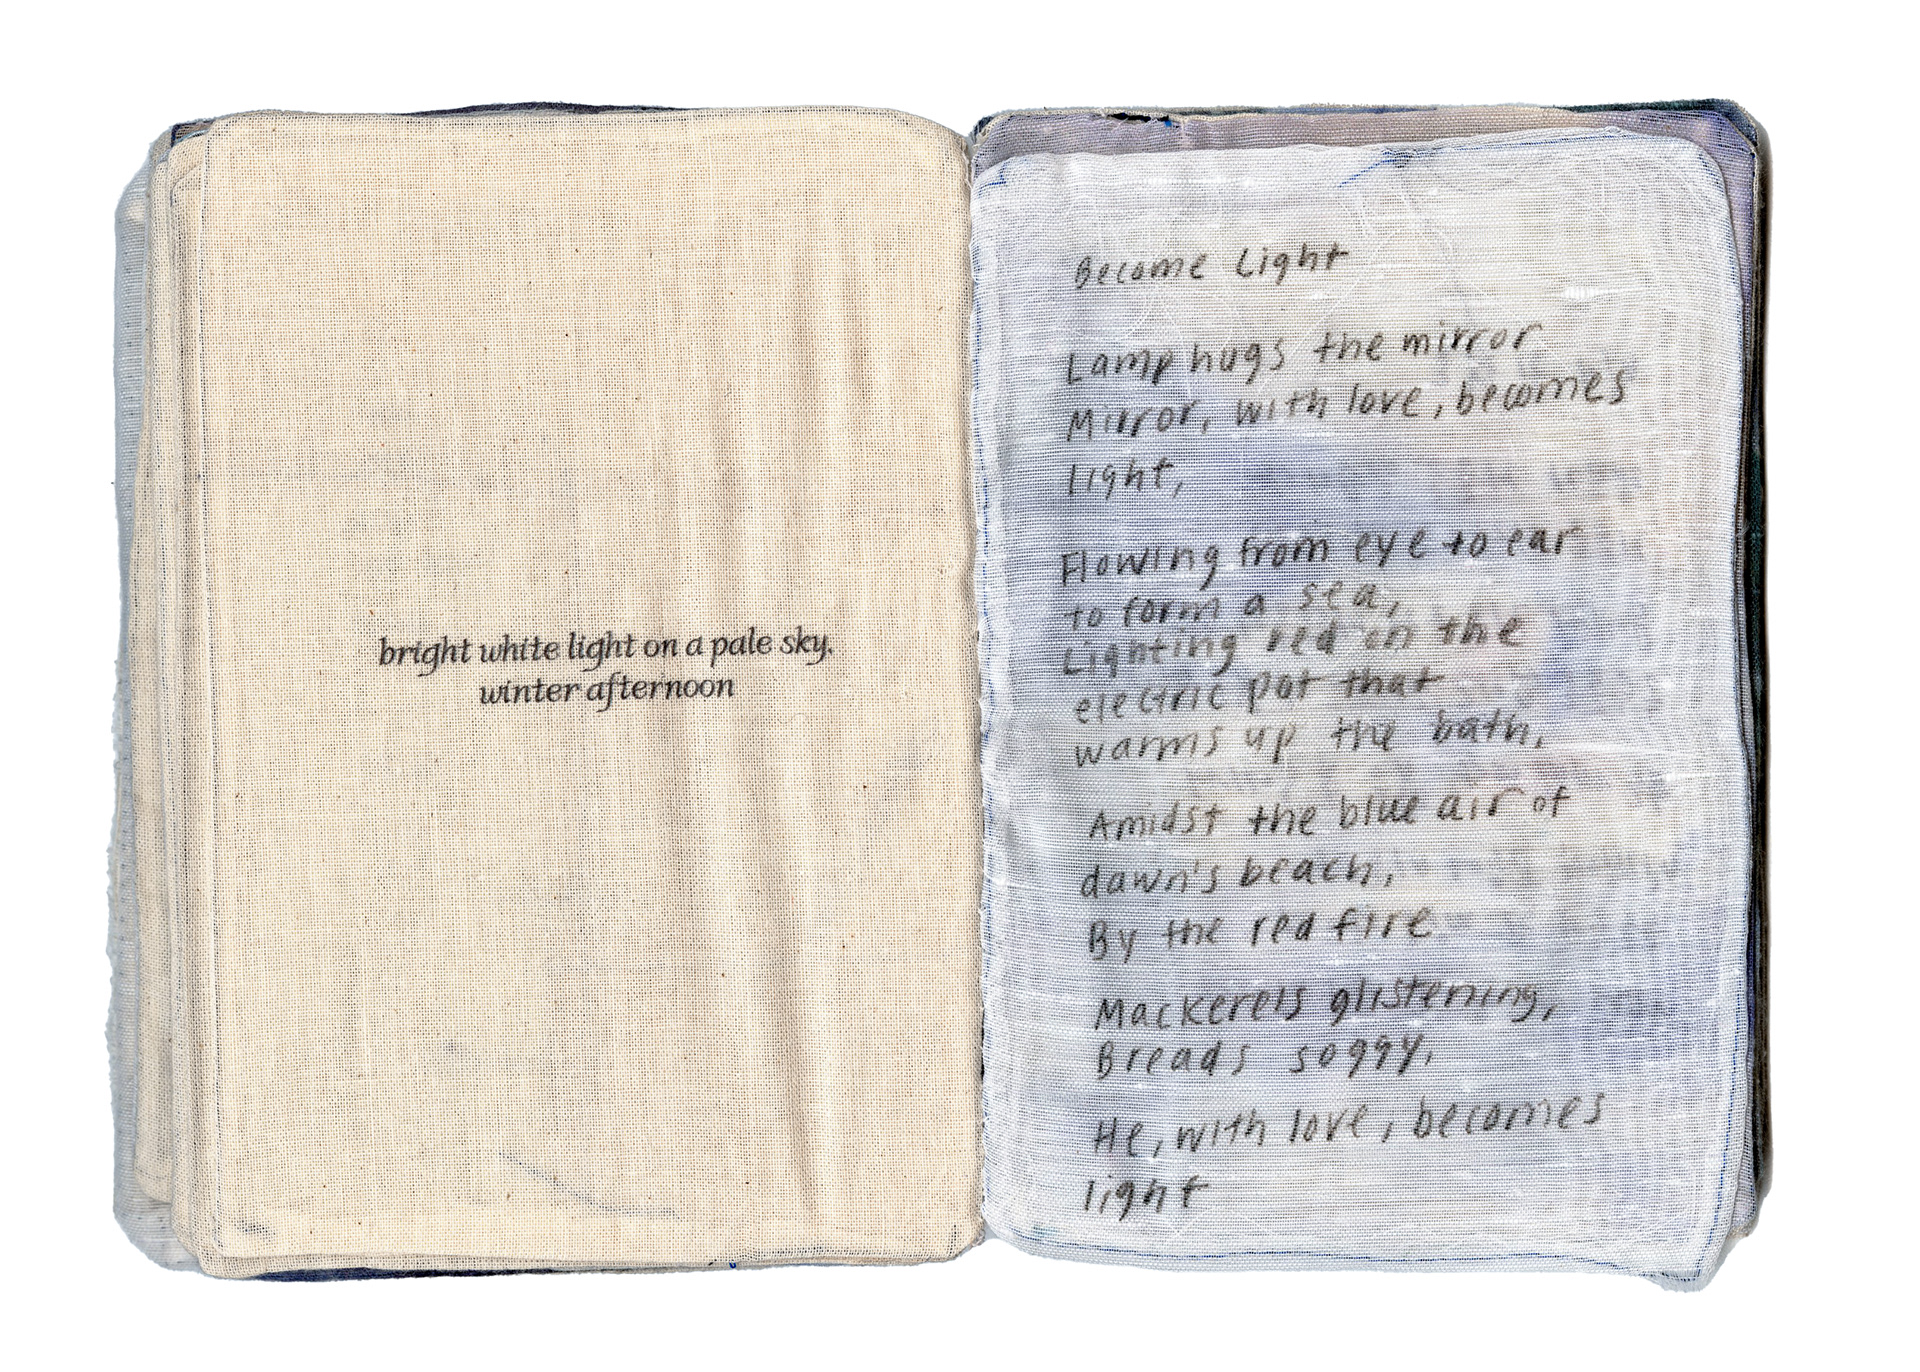 bright white light on a pale sky.
winter afternoon
Become Light
Lamp hugs the mirror
Mirror, with love, becomes
light,
Flowing from eye to ear
to form a sea,
Lighting red on the
electric pot that
warms up the bath,
Amidst the blue air of
dawn's beach,
By the red fire
Mackerels glistening,
Breads soggy,
He, with love, becomes
light